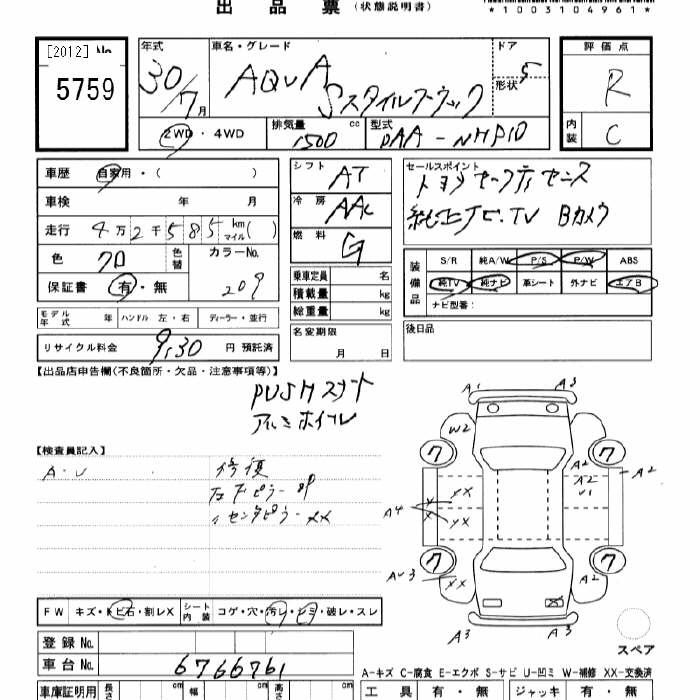 出品票(状態説明書)
*1003104961*
[2012] No.
5759
年式 車名・グレード ドア 評価点
30/7月 AQUA Sスタイルブラック 5 R
形状
2WD・4WD 排気量 1500 cc 型式 DAA-NHP10 内装 C
車歴 自家用・( )
シフト AT
セールスポイント
トヨタセーフティセンス
純正ナビ.TV Bカメラ
車検 年 月
冷房 AAC
走行 4万2千585 km マイル( )
燃料 G
色 クロ 色替 カラーNo. 209
保証書 有・無
装備品 S/R 純A/W P/S P/W ABS
純TV 純ナビ 革シート 外ナビ エアB
ナビ型番:
乗車定員 名
積載量 kg
総重量 kg
モデル年式 年 ハンドル 左・右 ディーラー・並行
名変期限 月 日
後日品
リサイクル料金 9,30 円 預託済
【出品店申告欄(不良箇所・欠品・注意事項等)】
PUSHスタート
アルミホイル
【検査員記入】
A・U 修復
センタピラー XX
A1 A3
W2
7 7
A2 A2 A2
U1
A4 XX XX
7 7
AU3 XX A2
A3 A3
FW キズ・トビ石・割レX シート内装 コゲ・穴・汚レ・シミ・破レ・スレ
登録No.
車台No. 6766761
スペア
A−キズ C−腐食 E−エクボ S−サビ U−凹ミ W−補修 XX−交換済
車庫証明用 長さ cm 幅 cm 高さ cm 工具 有・無 ジャッキ 有・無